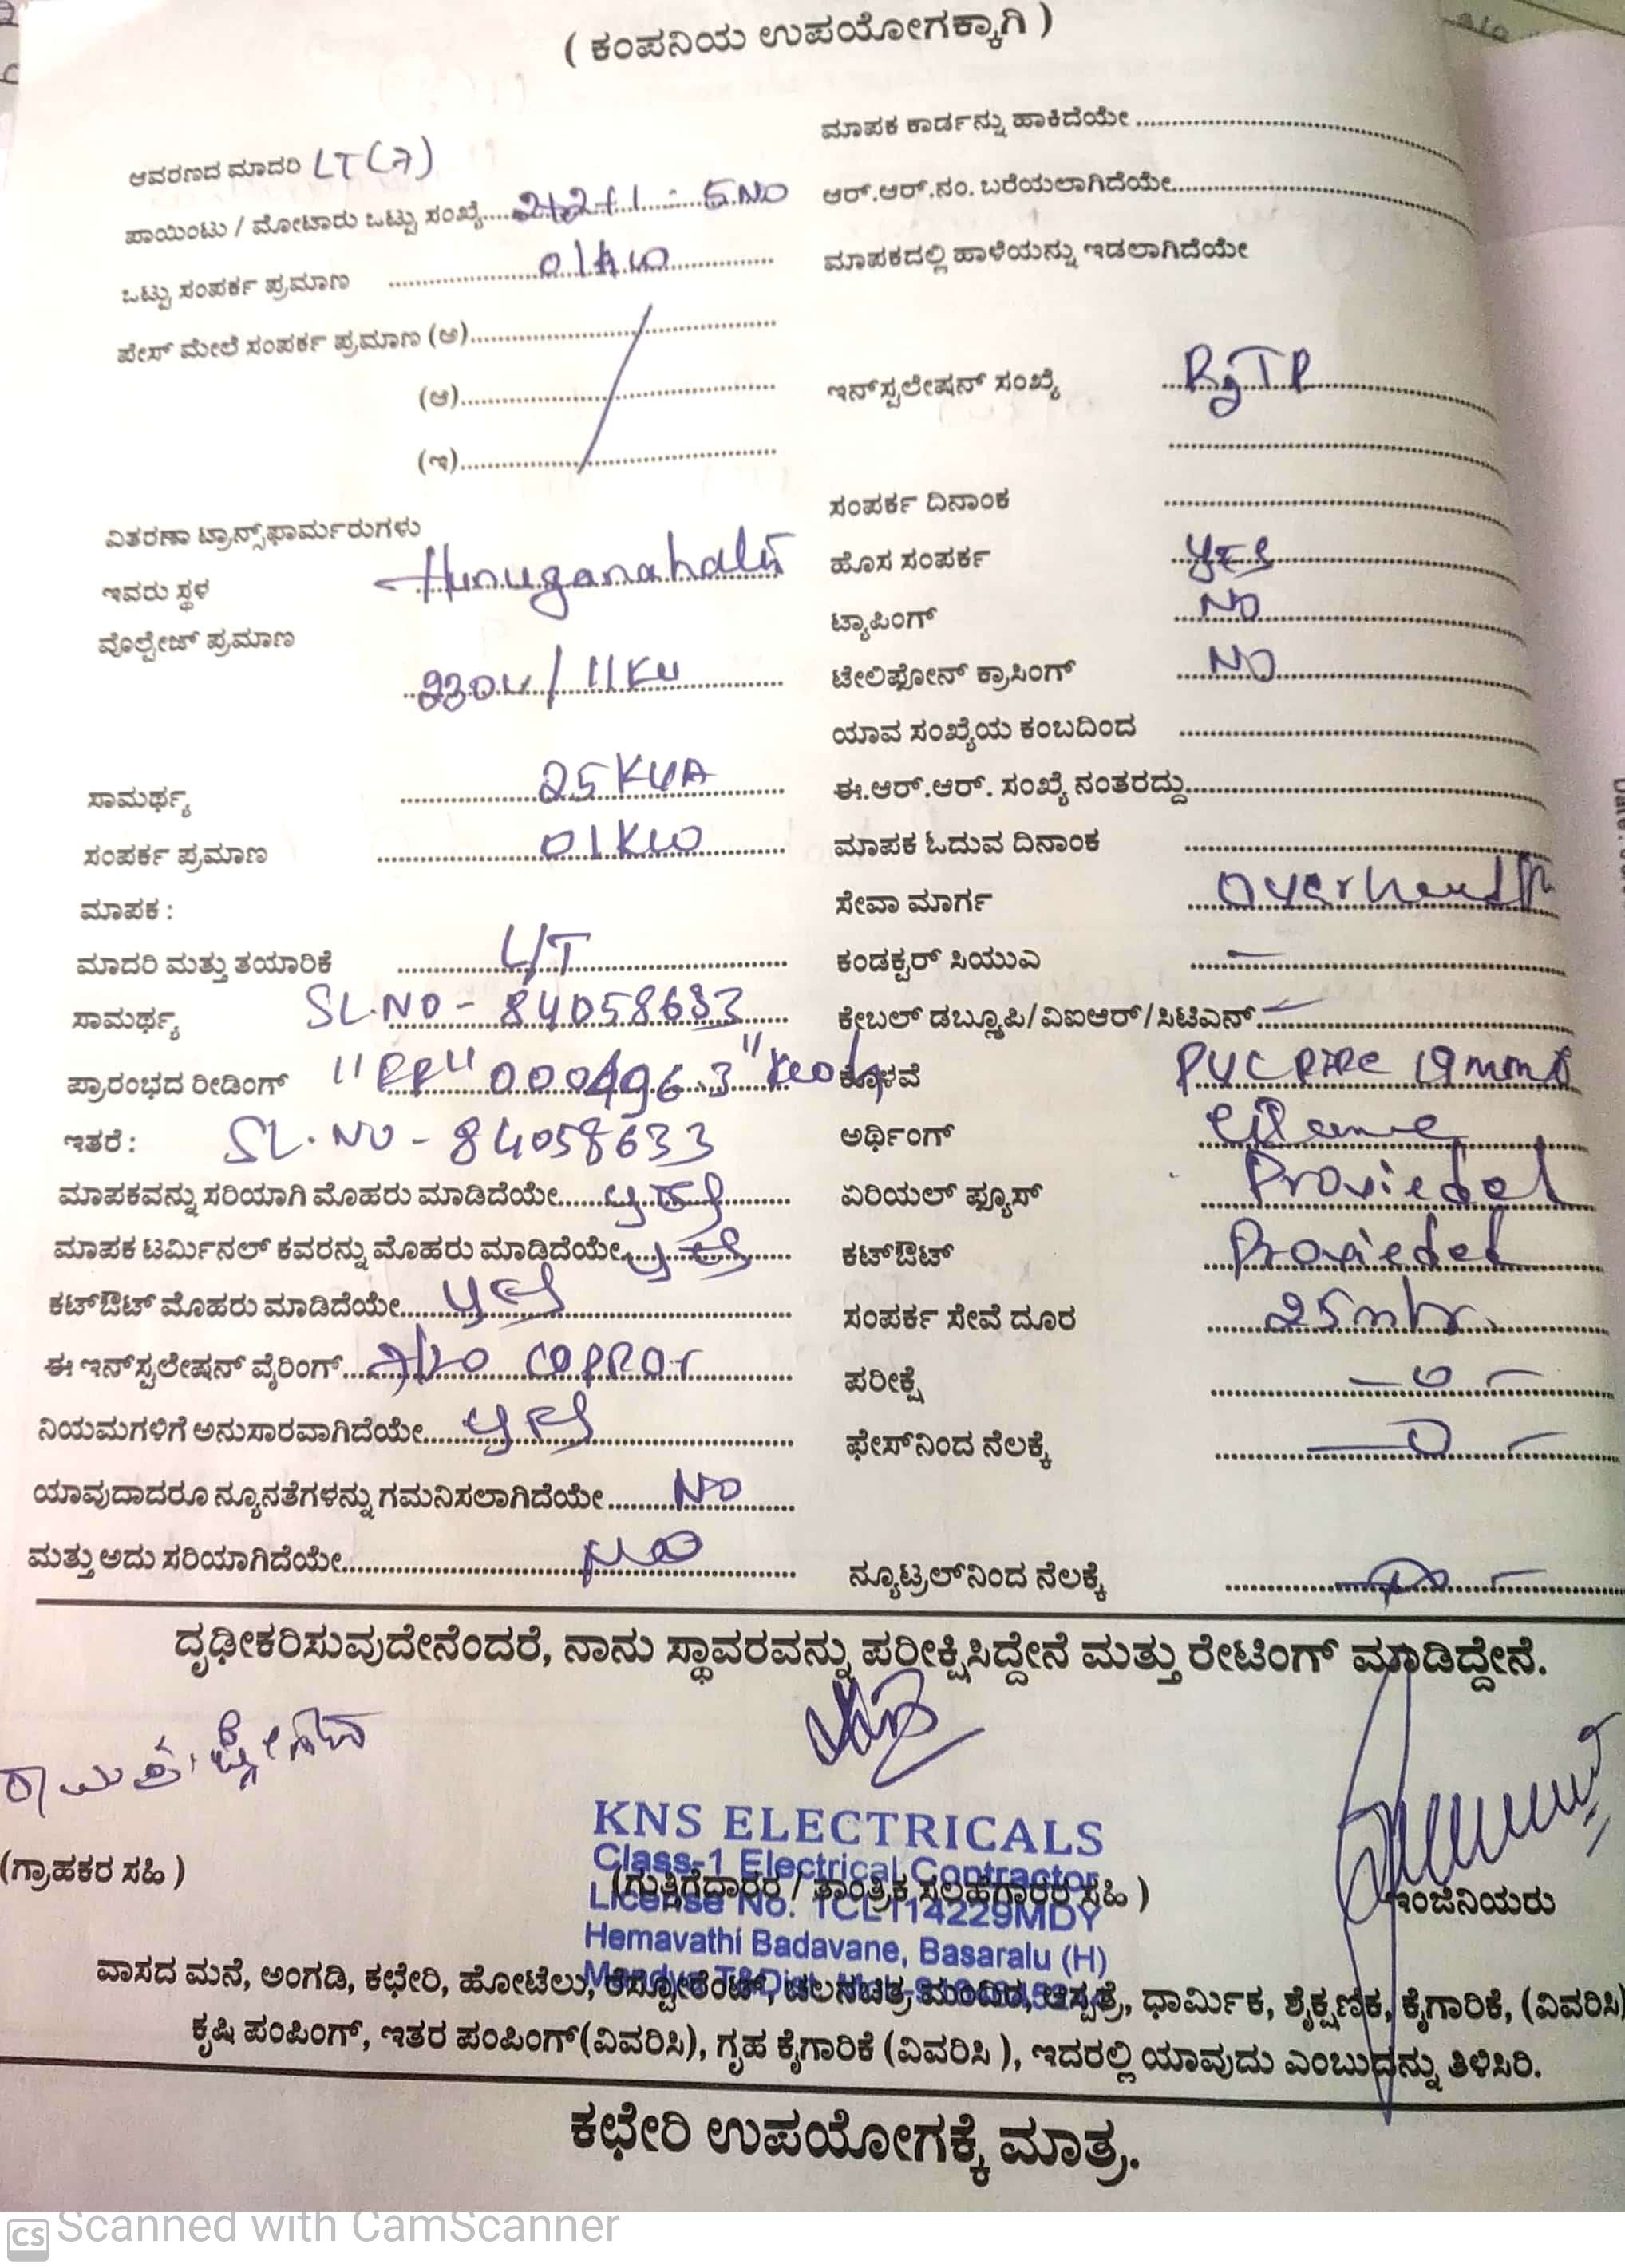 ( ಕಂಪನಿಯ ಉಪಯೋಗಕ್ಕಾಗಿ )
ಆವರಣದ ಮಾದರಿ LT(7)
ಪಾಯಿಂಟು / ಮೋಟಾರು ಒಟ್ಟು ಸಂಖ್ಯೆ 2+2+1 = 5.NO
ಒಟ್ಟು ಸಂಪರ್ಕ ಪ್ರಮಾಣ 01KW
ಪೇಸ್ ಮೇಲೆ ಸಂಪರ್ಕ ಪ್ರಮಾಣ (ಅ)
(ಆ)
(ಇ)
ವಿತರಣಾ ಟ್ರಾನ್ಸ್‌ಫಾರ್ಮರುಗಳು
ಇವರು ಸ್ಥಳ Hunuganahalli
ವೊಲ್ಟೇಜ್ ಪ್ರಮಾಣ
230V / 11KV
ಸಾಮರ್ಥ್ಯ 25 KVA
ಸಂಪರ್ಕ ಪ್ರಮಾಣ 01KW
ಮಾಪಕ :
ಮಾದರಿ ಮತ್ತು ತಯಾರಿಕೆ L/T
ಸಾಮರ್ಥ್ಯ SL.NO - 84058633
ಪ್ರಾರಂಭದ ರೀಡಿಂಗ್ 0004963
ಇತರೆ : SL.NO - 84058633
ಮಾಪಕವನ್ನು ಸರಿಯಾಗಿ ಮೊಹರು ಮಾಡಿದೆಯೇ yes
ಮಾಪಕ ಟರ್ಮಿನಲ್ ಕವರನ್ನು ಮೊಹರು ಮಾಡಿದೆಯೇ yes
ಕಟ್‌ಔಟ್ ಮೊಹರು ಮಾಡಿದೆಯೇ yes
ಈ ಇನ್‌ಸ್ಟಲೇಷನ್ ವೈರಿಂಗ್
ನಿಯಮಗಳಿಗೆ ಅನುಸಾರವಾಗಿದೆಯೇ yes
ಯಾವುದಾದರೂ ನ್ಯೂನತೆಗಳನ್ನು ಗಮನಿಸಲಾಗಿದೆಯೇ NO
ಮತ್ತು ಅದು ಸರಿಯಾಗಿದೆಯೇ NO
ಮಾಪಕ ಕಾರ್ಡನ್ನು ಹಾಕಿದೆಯೇ
ಆರ್.ಆರ್.ನಂ. ಬರೆಯಲಾಗಿದೆಯೇ
ಮಾಪಕದಲ್ಲಿ ಹಾಳೆಯನ್ನು ಇಡಲಾಗಿದೆಯೇ
ಇನ್‌ಸ್ಟಲೇಷನ್ ಸಂಖ್ಯೆ
ಸಂಪರ್ಕ ದಿನಾಂಕ
ಹೊಸ ಸಂಪರ್ಕ YES
ಟ್ಯಾಪಿಂಗ್ NO
ಟೇಲಿಫೋನ್ ಕ್ರಾಸಿಂಗ್ NO
ಯಾವ ಸಂಖ್ಯೆಯ ಕಂಬದಿಂದ
ಈ.ಆರ್.ಆರ್. ಸಂಖ್ಯೆ ನಂತರದ್ದು
ಮಾಪಕ ಓದುವ ದಿನಾಂಕ
ಸೇವಾ ಮಾರ್ಗ
ಕಂಡಕ್ಟರ್ ಸಿಯುಎ –
ಕೇಬಲ್ ಡಬ್ಲೂಪಿ/ವಿಐಆರ್/ಸಿಟಿಎನ್ –
ಕೊಳವೆ PVC PIPE 19mm
ಅರ್ಥಿಂಗ್
ಏರಿಯಲ್ ಫ್ಯೂಸ್ Proviedel
ಕಟ್‌ಔಟ್ Proviedel
ಸಂಪರ್ಕ ಸೇವೆ ದೂರ 25mtr.
ಪರೀಕ್ಷೆ – 0 –
ಫೇಸ್‌ನಿಂದ ನೆಲಕ್ಕೆ – 0 –
ನ್ಯೂಟ್ರಲ್‌ನಿಂದ ನೆಲಕ್ಕೆ
ದೃಢೀಕರಿಸುವುದೇನೆಂದರೆ, ನಾನು ಸ್ಥಾವರವನ್ನು ಪರೀಕ್ಷಿಸಿದ್ದೇನೆ ಮತ್ತು ರೇಟಿಂಗ್ ಮಾಡಿದ್ದೇನೆ.
KNS ELECTRICALS
Class-1 Electrical Contractor
(ಗ್ರಾಹಕರ ಸಹಿ )
(ಗುತ್ತಿಗೆದಾರರ / ತಾಂತ್ರಿಕ ಸಲಹೆಗಾರರ ಸಹಿ )
ಇಂಜಿನಿಯರು
License No. 1CL114229MDY
Hemavathi Badavane, Basaralu (H)
ವಾಸದ ಮನೆ, ಅಂಗಡಿ, ಕಛೇರಿ, ಹೋಟೆಲು, ರೆಸ್ಟೋರೆಂಟ್, ಚಲನಚಿತ್ರ ಮಂದಿರ, ಆಸ್ಪತ್ರೆ, ಧಾರ್ಮಿಕ, ಶೈಕ್ಷಣಿಕ, ಕೈಗಾರಿಕೆ, (ವಿವರಿಸಿ)
ಕೃಷಿ ಪಂಪಿಂಗ್, ಇತರ ಪಂಪಿಂಗ್(ವಿವರಿಸಿ), ಗೃಹ ಕೈಗಾರಿಕೆ (ವಿವರಿಸಿ ), ಇದರಲ್ಲಿ ಯಾವುದು ಎಂಬುದನ್ನು ತಿಳಿಸಿರಿ.
ಕಛೇರಿ ಉಪಯೋಗಕ್ಕೆ ಮಾತ್ರ.
CS Scanned with CamScanner